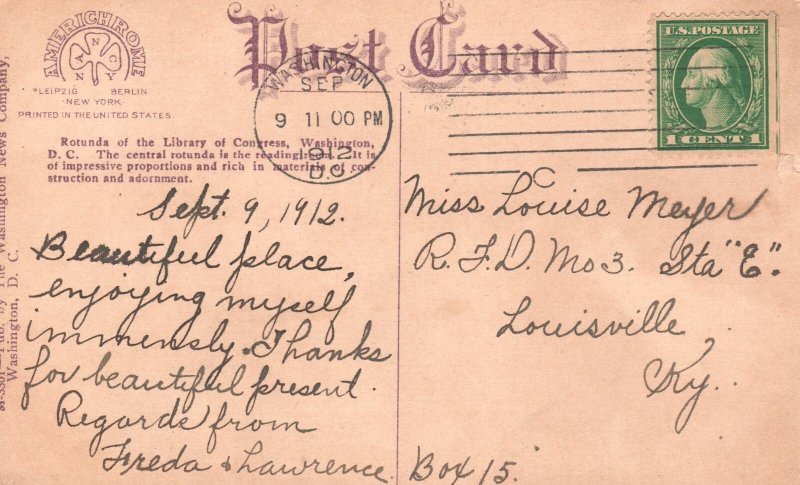 Post Card
AMERICHROME
NANCY
*LEIPZIG BERLIN
·NEW YORK·
PRINTED IN THE UNITED STATES
Rotunda of the Library of Congress, Washington,
D. C. The central rotunda is the reading room. It is
of impressive proportions and rich in materials of con-
struction and adornment.
M-3301—Pub. by The Washington News Company,
Washington, D. C.
WASHINGTON
SEP
9 11 00 PM
1912
D.C.
U.S. POSTAGE
1 CENT 1
Sept. 9, 1912.
Beautiful place,
enjoying myself
immensly. Thanks
for beautiful present.
Regards from
Freda & Lawrence.
Miss Louise Meyer
R.F.D. No 3. Sta "E".
Louisville,
Ky.
Box 15.